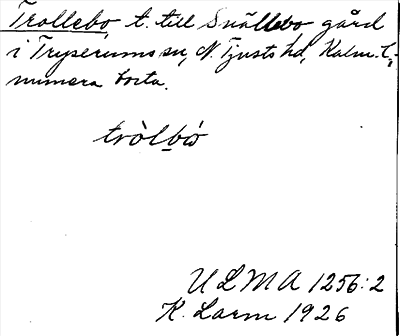 Trollebo t. till Snällebo gård
i Tryserums sn, N. Tjusts hd, Kalm. l.;
numera borta.
tròlbò
ULMA 1256:2
K. Larm 1926